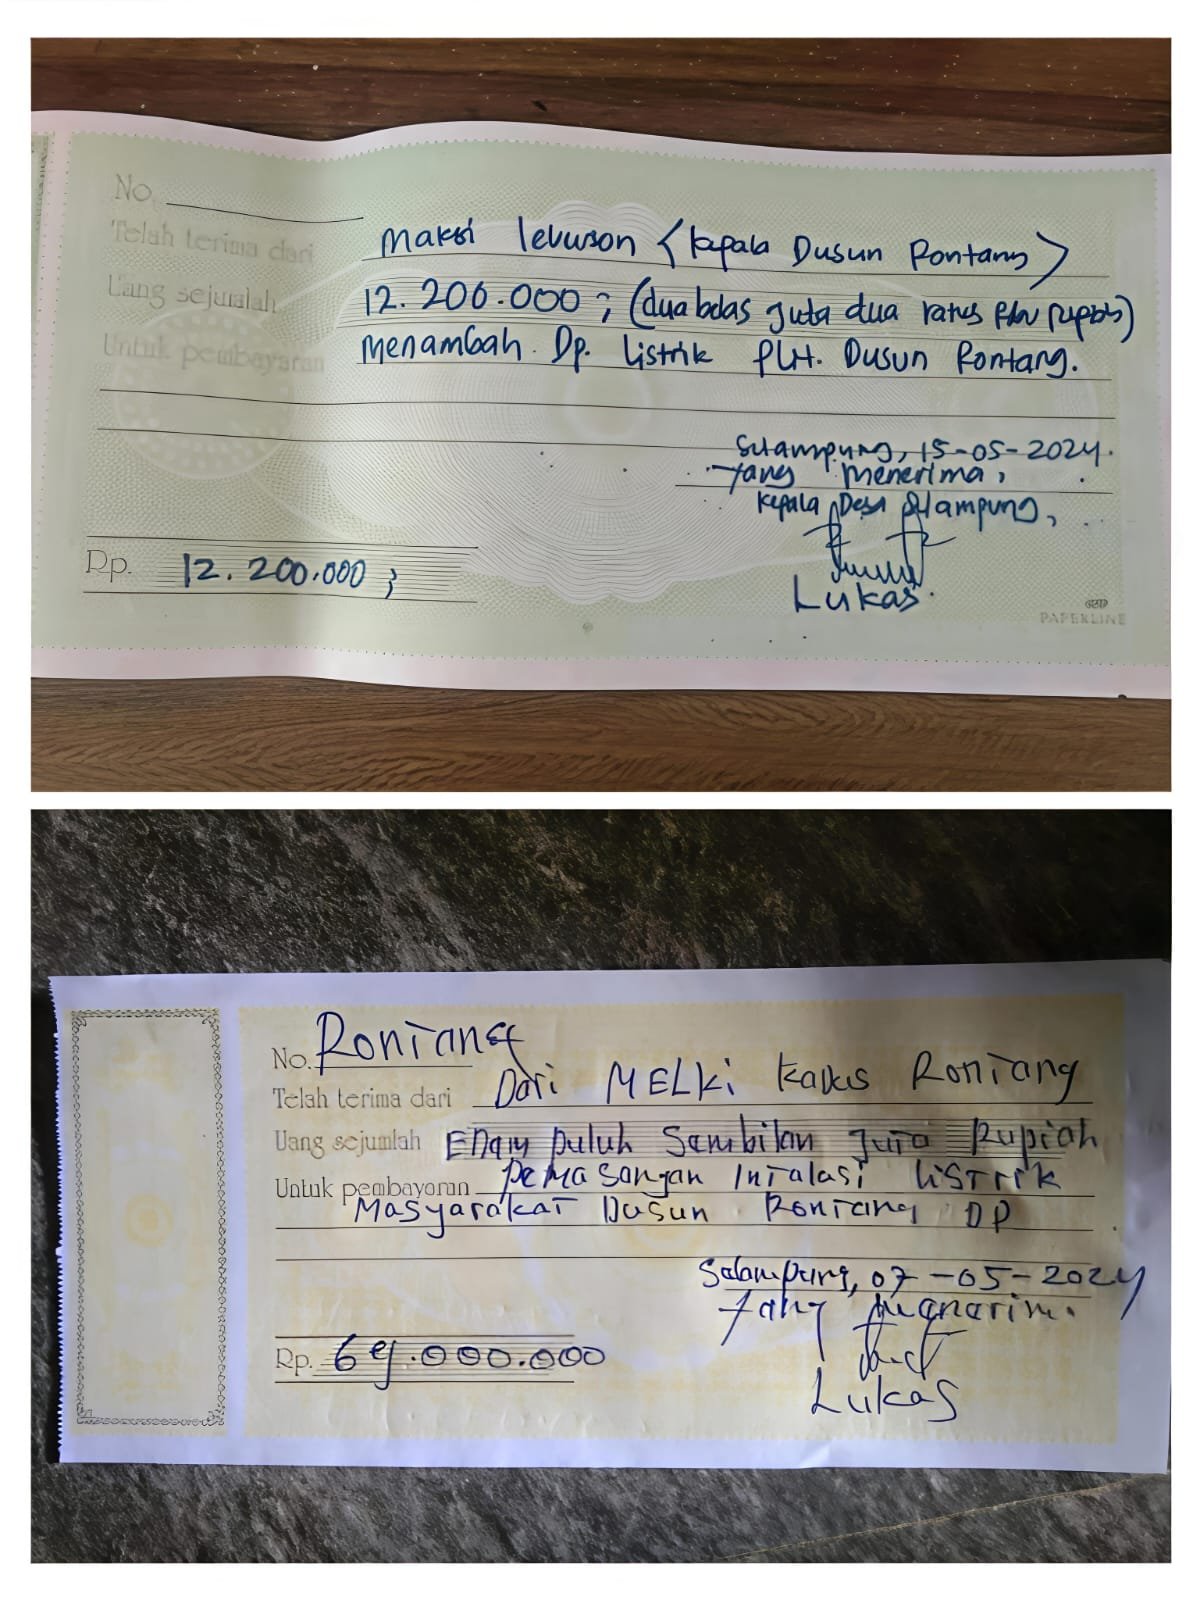 No.
Telah terima dari Maksi levuson (kepala Dusun Rontang)
Uang sejumlah 12.200.000; (dua belas juta dua ratus ribu rupiah)
Untuk pembayaran Menambah Dp. listrik PLN. Dusun Rontang.
Salampung, 15-05-2024.
Yang Menerima,
Kepala Desa Salampung,
Lukas.
Rp. 12.200.000;
PAPERLINE
No. Rontang
Telah terima dari Dari MELKi Kadus Rontang
Uang sejumlah Enam puluh Sambilan Juta Rupiah
Untuk pembayaran PeMasangan Intalasi LiSTrik
Masyarakat Dusun Rontang DP
Salampung, 07-05-2024
Yang Manarima.
Lukas
Rp. 69.000.000